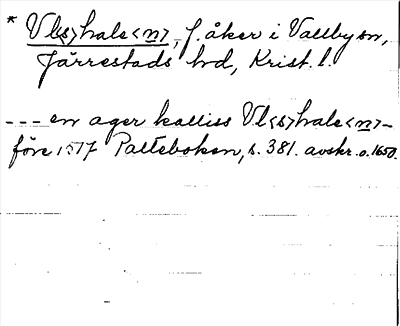 * Vl<s>hale<n>, f. åker i Vallby sn,
Järrestads hd, Krist. l.
--- en ager kalliss Vl<s>hale<n> –
före 1577 Palteboken, s. 381. avskr. o. 1650.